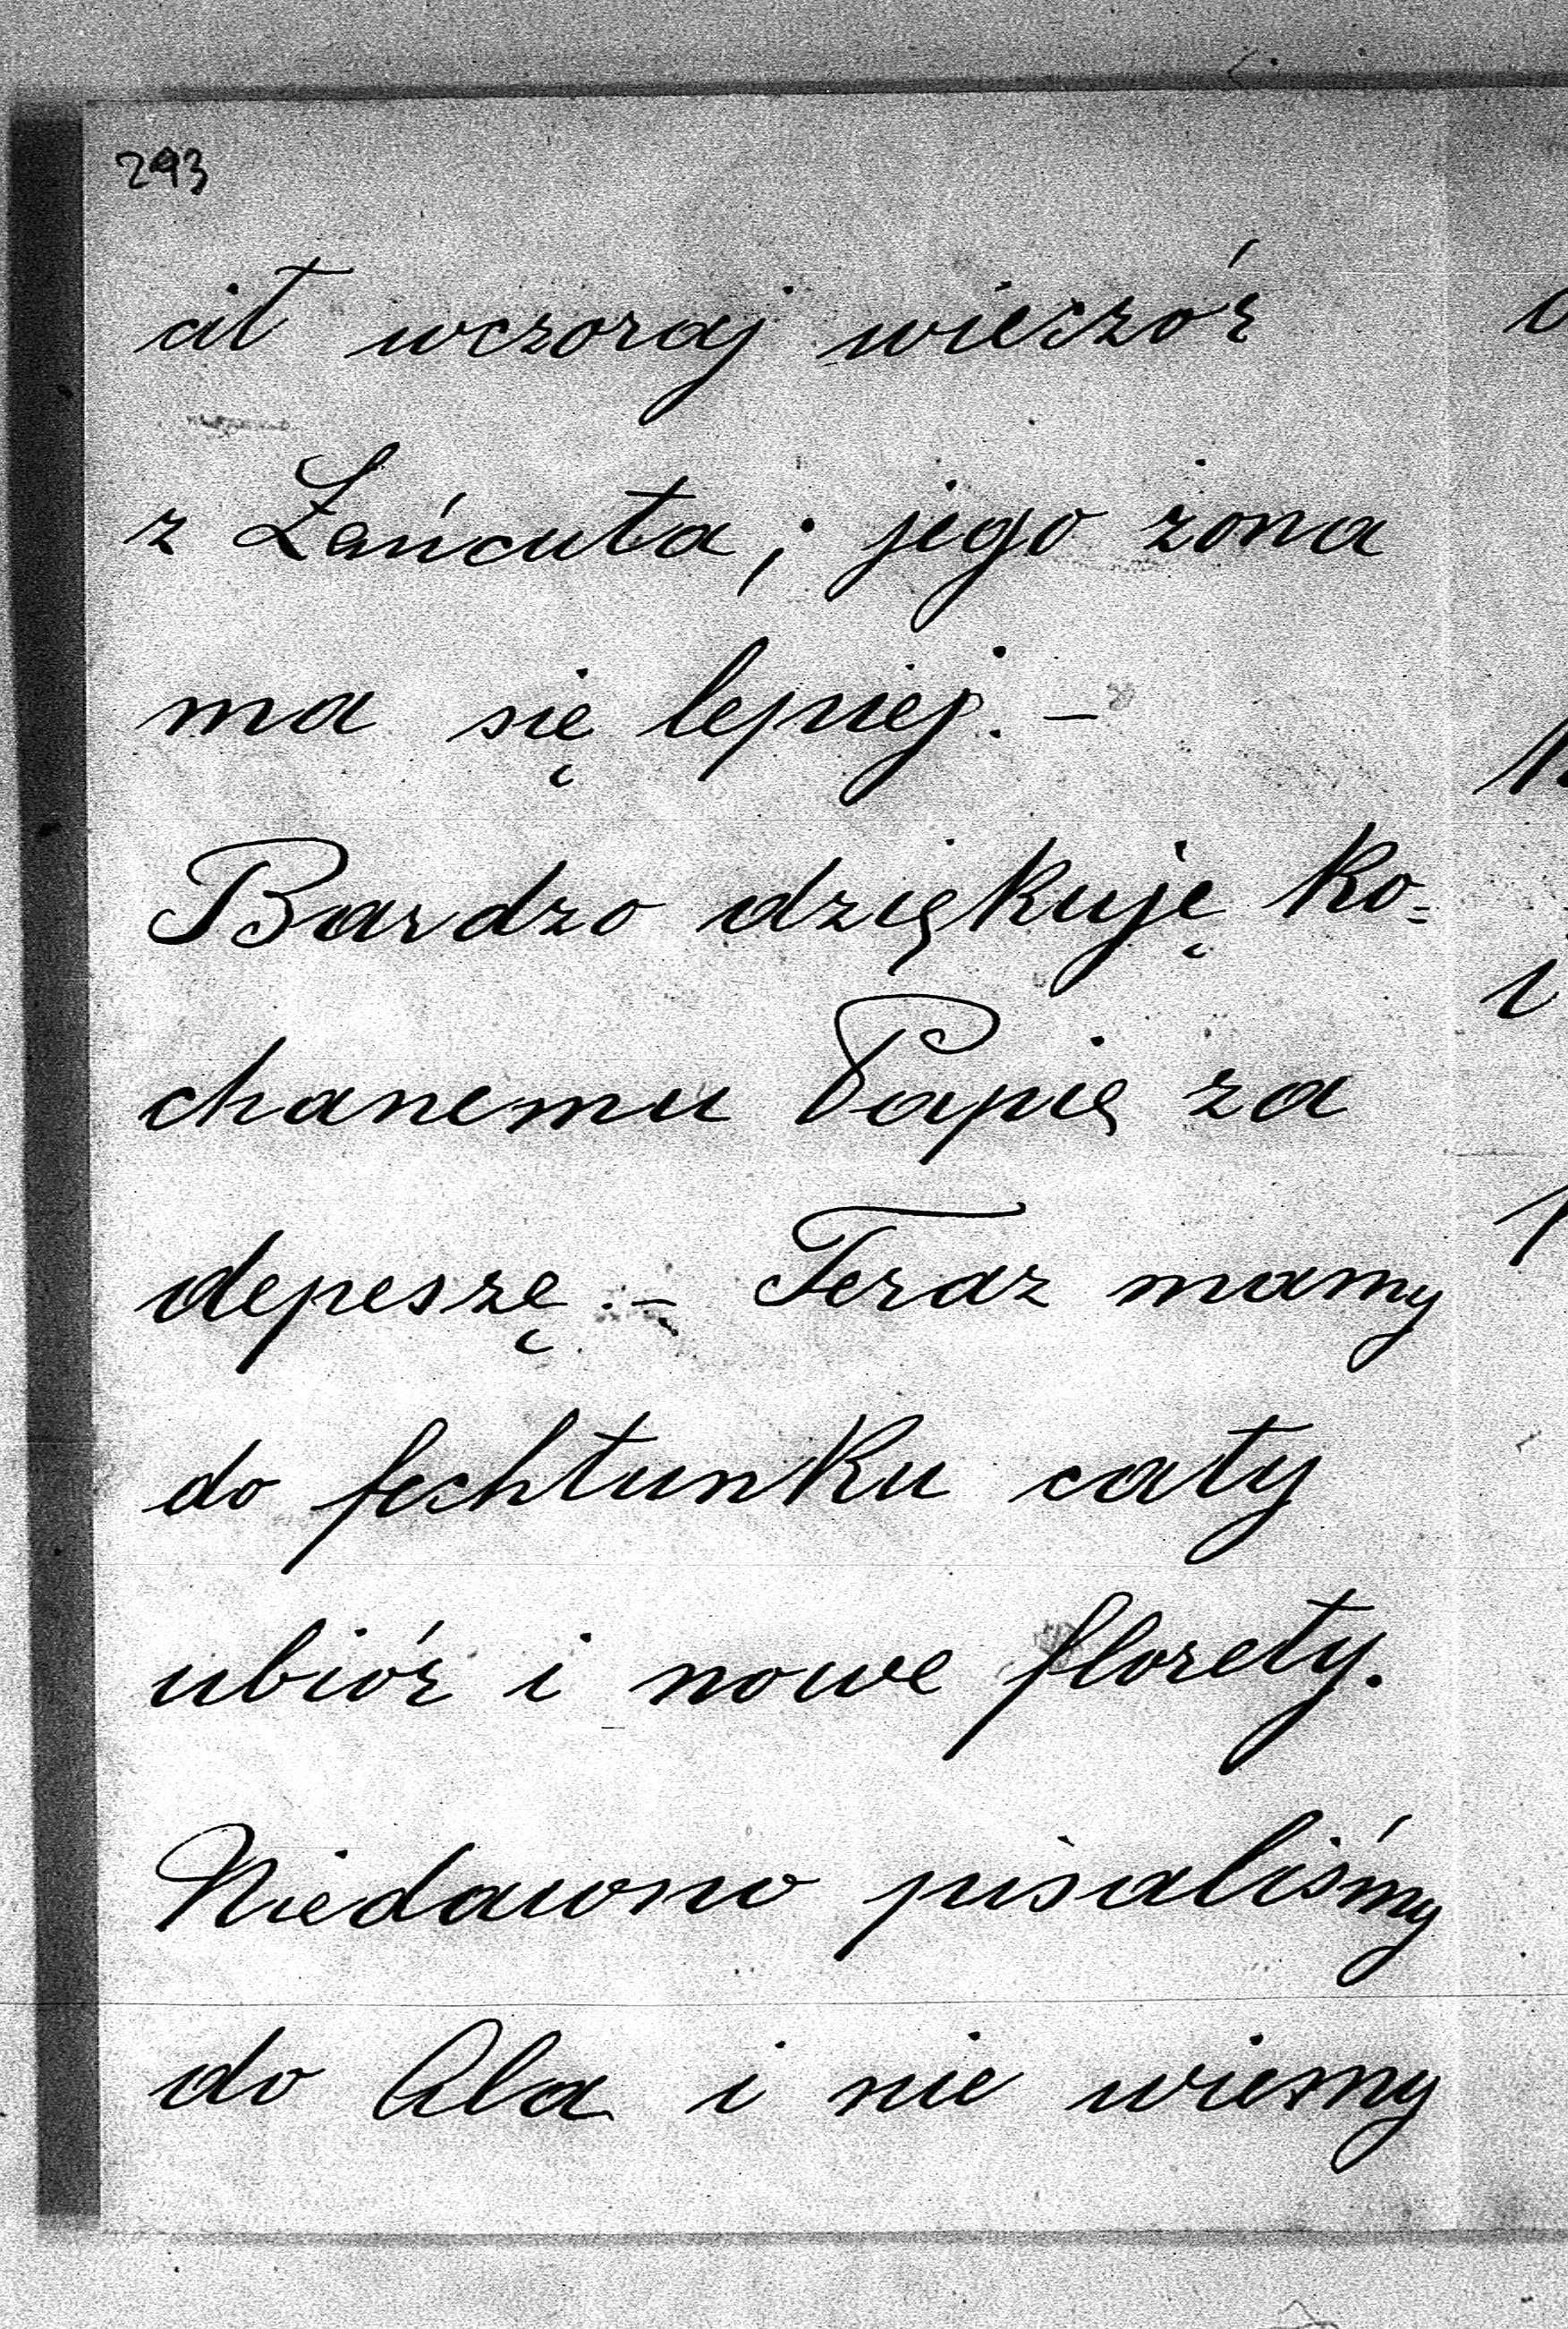 293
cił wczoraj wieczór
z Łańcuta; jego żona
ma się lepiej. –
Bardzo dziękuję ko=
chanemu Papię za
depeszę. – Teraz mamy
do fechtunku cały
ubiór i nowe florety.
Niedawno pisaliśmy
do Ala i nie wiemy